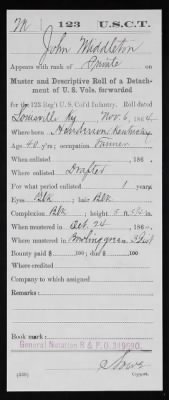 M | 123 | U.S.C.T.
John Middleton
Appears with rank of Private on
Muster and Descriptive Roll of a Detach-
ment of U. S. Vols. forwarded
for the 123 Reg't U. S. Col'd Infantry. Roll dated
Louisville Ky, Nov. 6, 1864.
Where born Henderson, Kentucky
Age 40 y'rs; occupation Farmer
When enlisted , 186 .
Where enlisted Drafted
For what period enlisted 1 years.
Eyes Blk ; hair Blk
Complexion Blk ; height 5 ft. in.
When mustered in Oct. 24 , 186 .
Where mustered in Bowling green
Bounty paid $ 100; due $ 100
Where credited
Company to which assigned
Remarks:
Book mark:
General Notation R & P.O. 319690.
(339) Copyist.